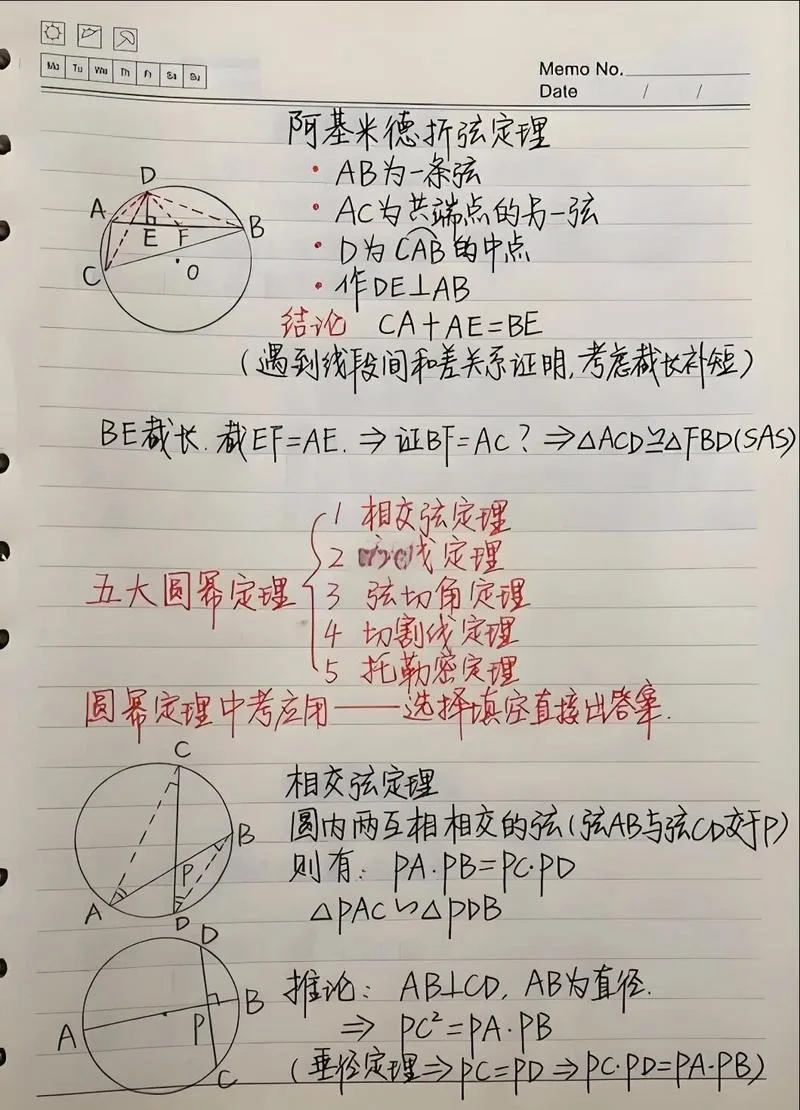 Mo Tu We Th Fr Sa Su
Memo No.
Date / /
阿基米德折弦定理
· AB为一条弦
· AC为共端点的另一弦
· D为CAB的中点
· 作DE⊥AB
结论 CA+AE=BE
(遇到线段间和差关系证明,考虑截长补短)
D
A
E
F
B
C
O
BE截长.截EF=AE.⇒证BF=AC?⇒△ACD≌△FBD(SAS)
五大圆幂定理
1 相交弦定理
2 线定理
3 弦切角定理
4 切割线定理
5 托勒密定理
圆幂定理中考应用——选择填空直接出答案.
C
B
P
A
D
相交弦定理
圆内两互相相交的弦(弦AB与弦CD交于P)
则有: PA·PB=PC·PD
△PAC∽△PDB
D
B
A
P
C
推论: AB⊥CD, AB为直径.
⇒ PC²=PA·PB
(垂径定理⇒PC=PD⇒PC·PD=PA·PB)